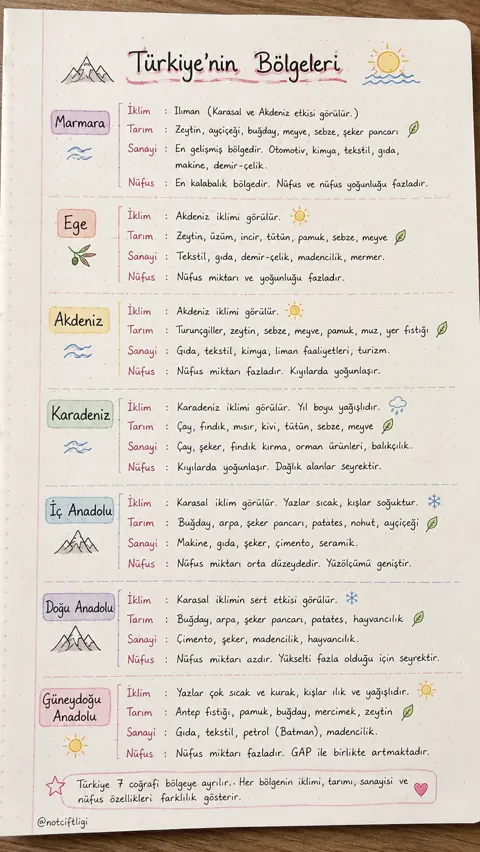 Türkiye'nin Bölgeleri
Marmara
İklim : Ilıman (Karasal ve Akdeniz etkisi görülür.)
Tarım : Zeytin, ayçiçeği, buğday, meyve, sebze, şeker pancarı
Sanayi : En gelişmiş bölgedir. Otomotiv, kimya, tekstil, gıda,
makine, demir-çelik.
Nüfus : En kalabalık bölgedir. Nüfus ve nüfus yoğunluğu fazladır.
Ege
İklim : Akdeniz iklimi görülür.
Tarım : Zeytin, üzüm, incir, tütün, pamuk, sebze, meyve
Sanayi : Tekstil, gıda, demir-çelik, madencilik, mermer.
Nüfus : Nüfus miktarı ve yoğunluğu fazladır.
Akdeniz
İklim : Akdeniz iklimi görülür.
Tarım : Turunçgiller, zeytin, sebze, meyve, pamuk, muz, yer fıstığı
Sanayi : Gıda, tekstil, kimya, liman faaliyetleri, turizm.
Nüfus : Nüfus miktarı fazladır. Kıyılarda yoğunlaşır.
Karadeniz
İklim : Karadeniz iklimi görülür. Yıl boyu yağışlıdır.
Tarım : Çay, fındık, mısır, kivi, tütün, sebze, meyve
Sanayi : Çay, şeker, fındık kırma, orman ürünleri, balıkçılık.
Nüfus : Kıyılarda yoğunlaşır. Dağlık alanlar seyrektir.
İç Anadolu
İklim : Karasal iklim görülür. Yazlar sıcak, kışlar soğuktur.
Tarım : Buğday, arpa, şeker pancarı, patates, nohut, ayçiçeği
Sanayi : Makine, gıda, şeker, çimento, seramik.
Nüfus : Nüfus miktarı orta düzeydedir. Yüzölçümü geniştir.
Doğu Anadolu
İklim : Karasal iklimin sert etkisi görülür.
Tarım : Buğday, arpa, şeker pancarı, patates, hayvancılık
Sanayi : Çimento, şeker, madencilik, hayvancılık.
Nüfus : Nüfus miktarı azdır. Yükselti fazla olduğu için seyrektir.
Güneydoğu
Anadolu
İklim : Yazlar çok sıcak ve kurak, kışlar ılık ve yağışlıdır.
Tarım : Antep fıstığı, pamuk, buğday, mercimek, zeytin
Sanayi : Gıda, tekstil, petrol (Batman), madencilik.
Nüfus : Nüfus miktarı fazladır. GAP ile birlikte artmaktadır.
Türkiye 7 coğrafi bölgeye ayrılır.. Her bölgenin iklimi, tarımı, sanayisi ve
nüfus özellikleri farklılık gösterir.
@notciftligi